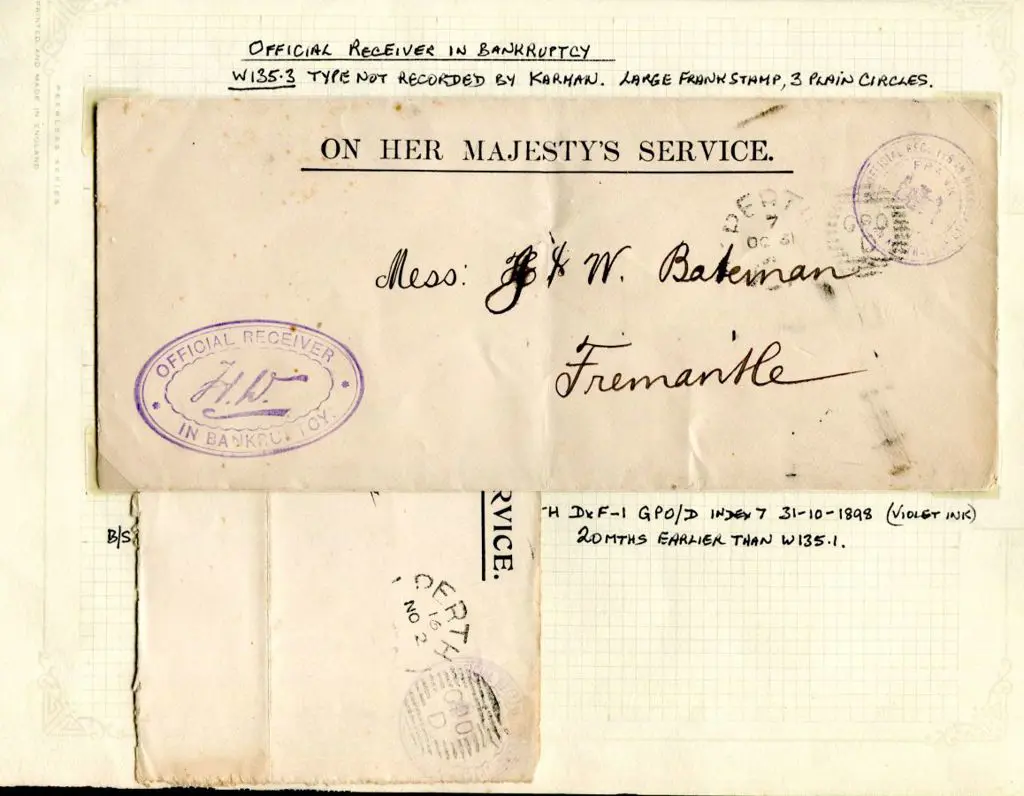 PRINTED AND MADE IN ENGLAND
PEERLESS SERIES
OFFICIAL RECEIVER IN BANKRUPTCY
W135.3 TYPE NOT RECORDED BY KARMAN. LARGE FRANK STAMP, 3 PLAIN CIRCLES.
ON HER MAJESTY'S SERVICE.
PERTH
7
OC 31
GPO
D
Mess: J & W. Bateman
Fremantle
OFFICIAL RECEIVER
H.W.
IN BANKRUPTCY.
B/S
RVICE.
H DxF-1 GPO/D INDEX 7 31-10-1898 (VIOLET INK)
20 MTHS EARLIER THAN W135.1.
PERTH
16
NO 2
GPO
D